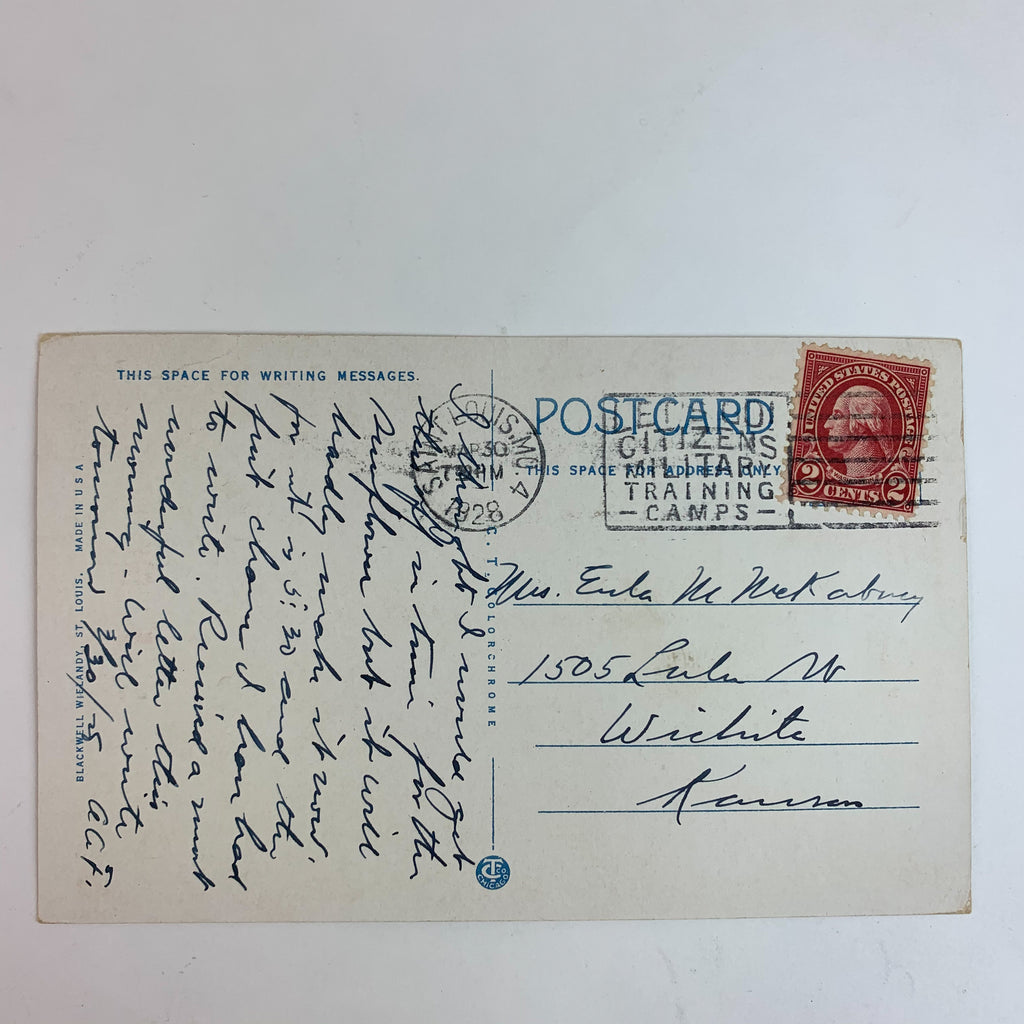 THIS SPACE FOR WRITING MESSAGES.
So thought I would get
this off in time for the
Sunflower but it will
hardly make it now.
for it is 5:30 and the
first chance I have had
to write. Received a most
wonderful letter this
morning - Will write
tomorrow 3/30/25
MADE IN U S A
BLACKWELL WIELANDY, ST. LOUIS.
C. T. COLORCHROME
SAINT LOUIS, MO. 4
MAR 30
PM
1928
POST CARD
THIS SPACE FOR ADDRESS ONLY
CITIZENS
MILITARY
TRAINING
- CAMPS -
UNITED STATES POSTAGE
WASHINGTON
2 CENTS 2
Mrs. Eula M
1505 Lulu
Wichita
Kansas
CT CO
CHICAGO